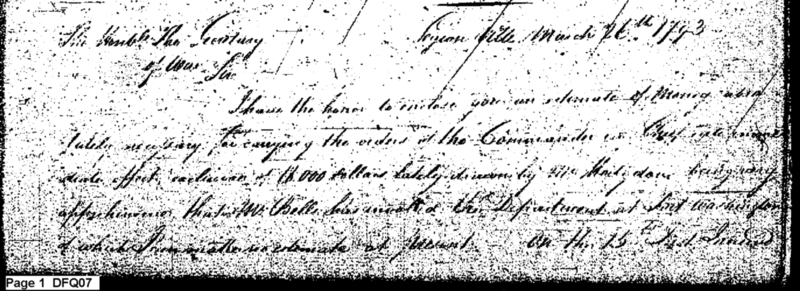 The Honble The Secretary Legion Ville March 26th 1793
of War
Sir
I have the honor to enclose you an estimate of Money abso
lutely necessary for carrying the orders of the Commander in Chief into imme
diate effect, exclusive of 18,000 dollars lately drawn by Mr
apprehensive that Mr Belli has involved the Department at Fort Washington
of which I can make no estimate at present. On the 15th Inst I
Page 1 DFQ07